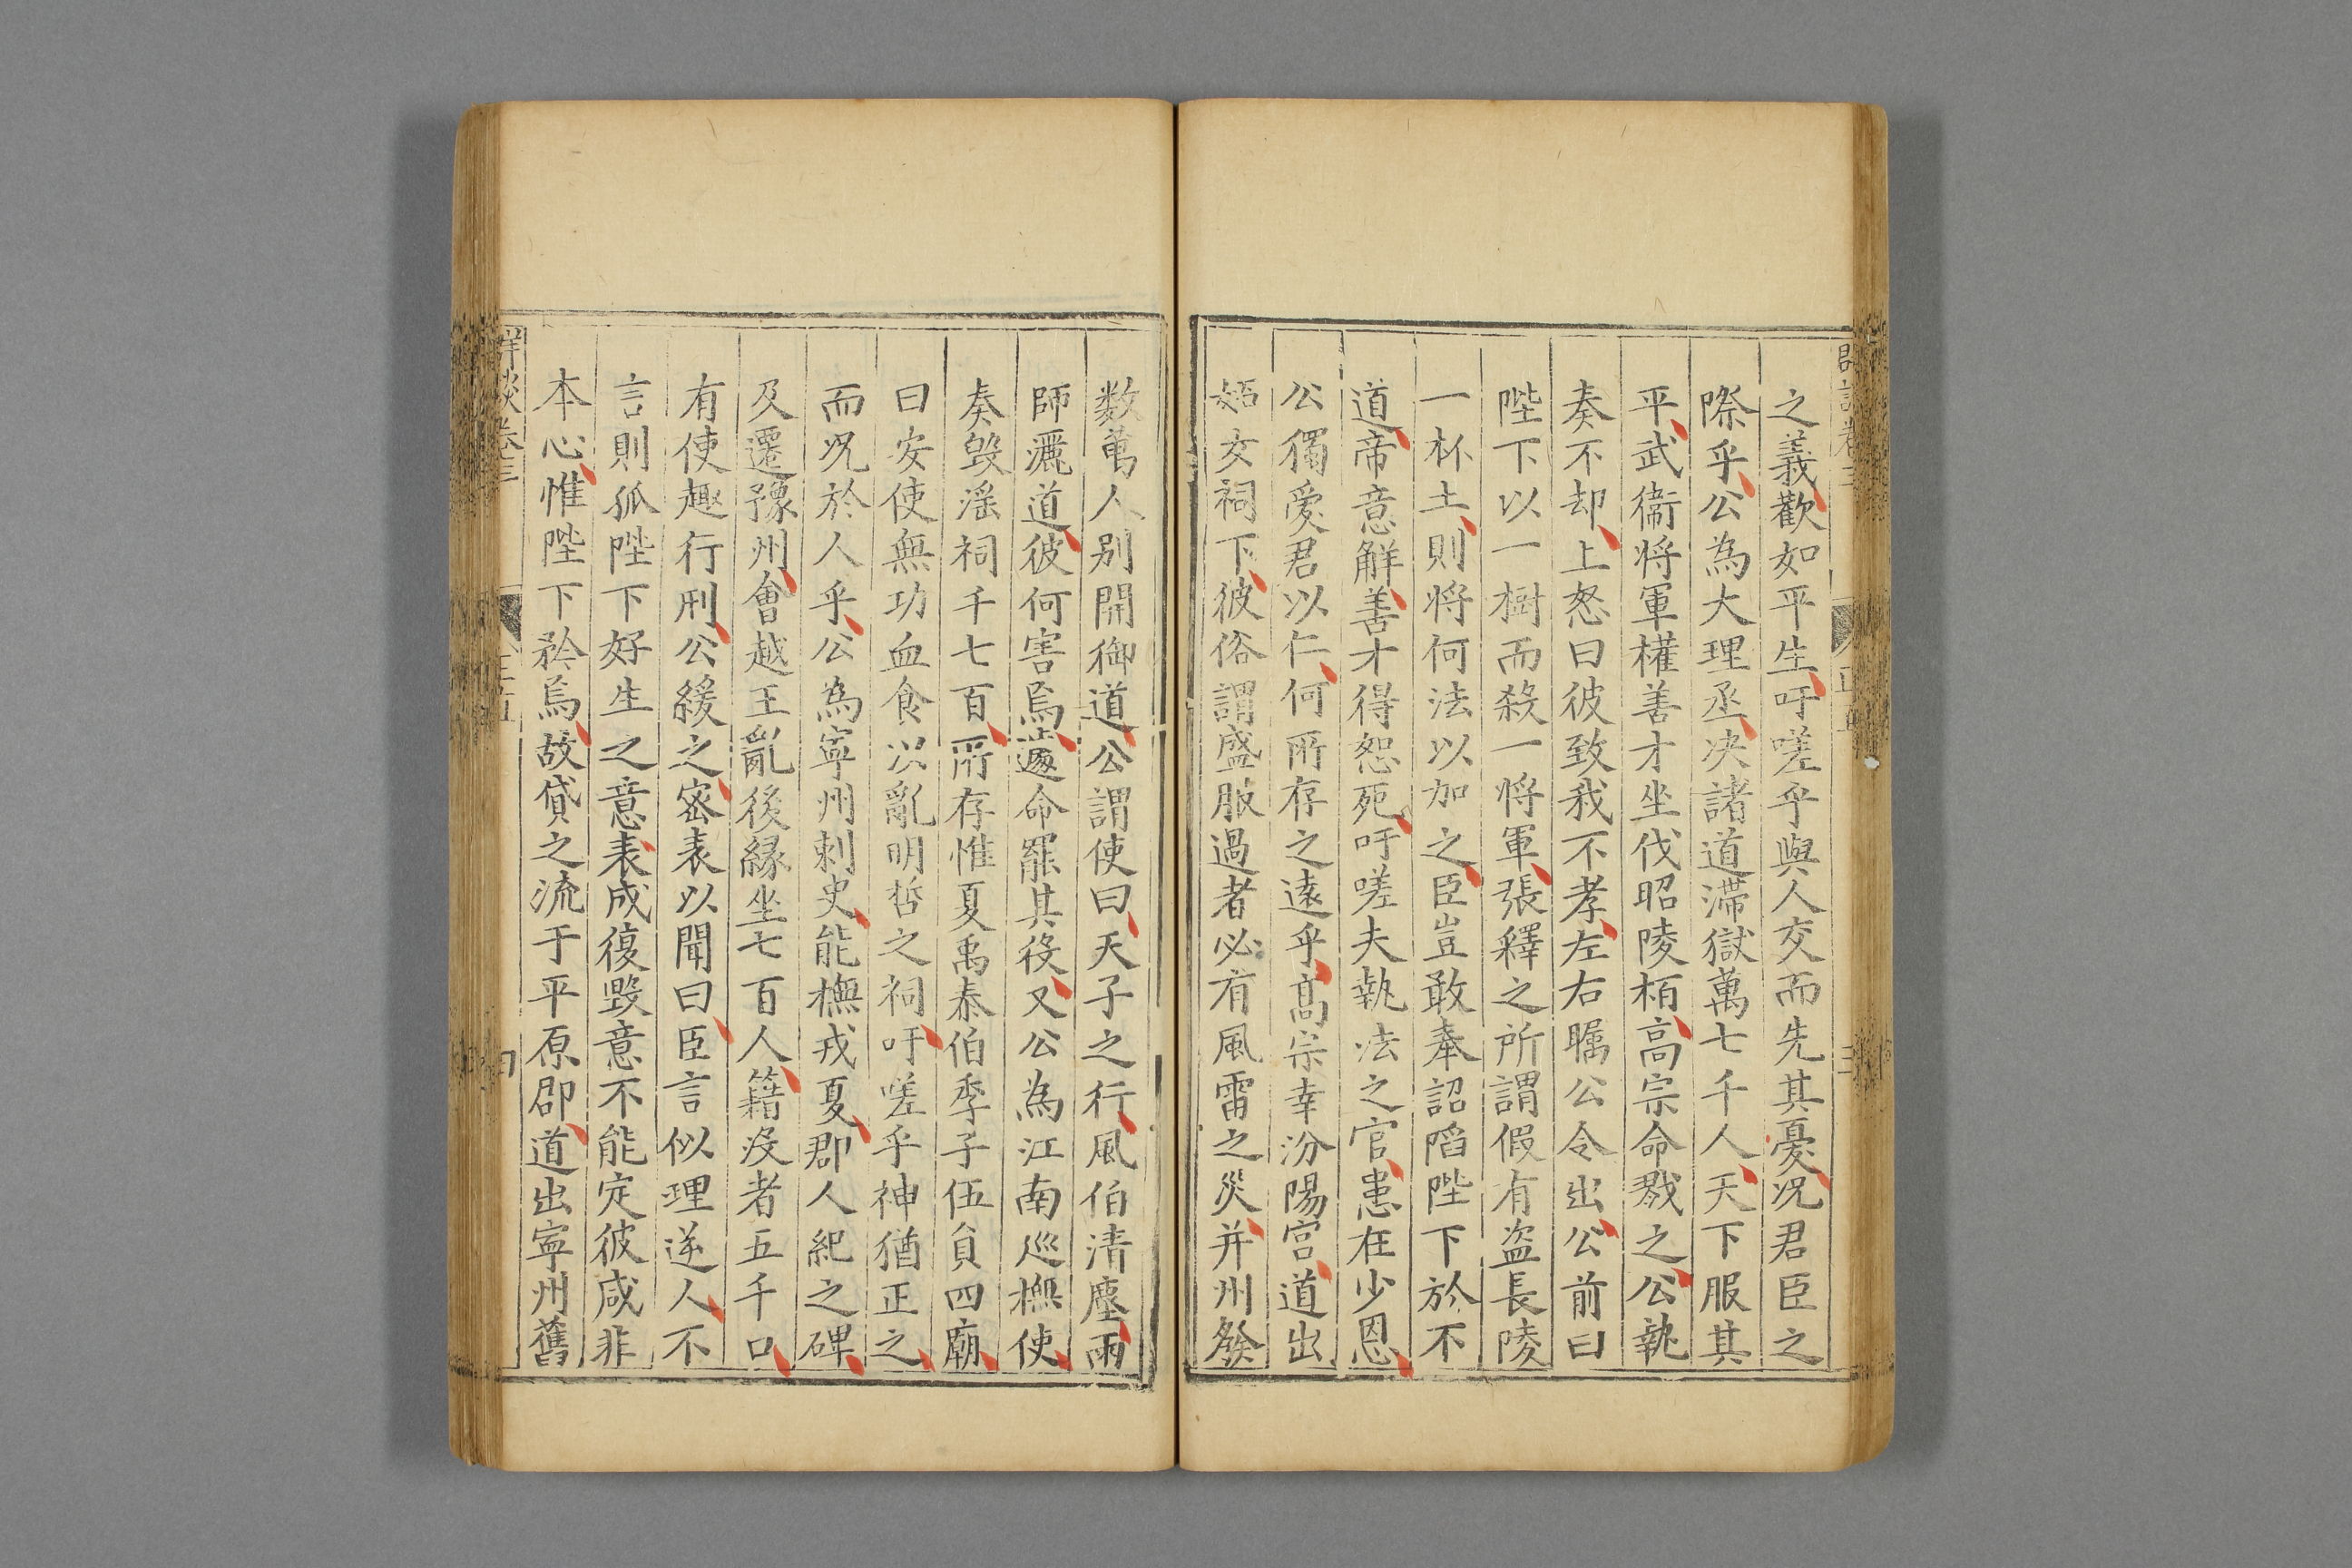 之義歡如平生吁嗟乎與人交而先其憂况君臣之
際乎公為大理丞决諸道滯獄萬七千人天下服其
平武衛将軍權善才坐伐昭陵栢高宗命戮之公執
奏不却上怒曰彼致我不孝左右矚公令出公前曰
陛下以一樹而殺一將軍張釋之所謂假有盗長陵
一杯土則將何法以加之臣豈敢奉詔陷陛下於不
道帝意觧善才得恕死吁嗟夫執法之官患在少恩
公獨愛君以仁何所存之遠乎高宗幸汾陽宫道出
妬女祠下彼俗謂盛服過者必有風雷之災并州發
数萬人别開御道公謂使曰天子之行風伯清塵雨
師灑道彼何害焉遽命罷其役又公為江南巡橅使
奏毁滛祠千七百所存惟夏禹泰伯季子伍員四廟
曰安使無功血食以亂明哲之祠吁嗟乎神猶正之
而况於人乎公為寧州刺史能橅戎夏郡人紀之碑
及遷豫州會越王亂後緣坐七百人籍没者五千口
有使趣行刑公緩之宻表以聞曰臣言似理逆人不
言則孤陛下好生之意表成復毀意不能定彼咸非
本心惟陛下矜焉故貸之流于平原郡道出寧州舊
卷三